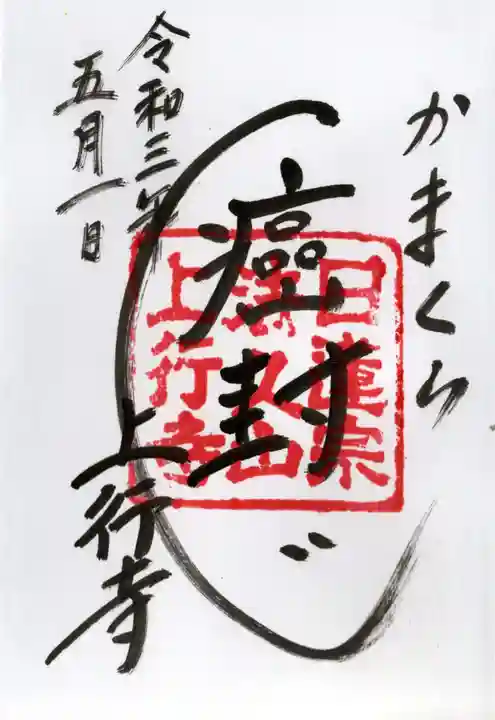 かまくら
癌封じ
上行寺
令和三年
五月一日
日蓮宗
法久山
上行寺